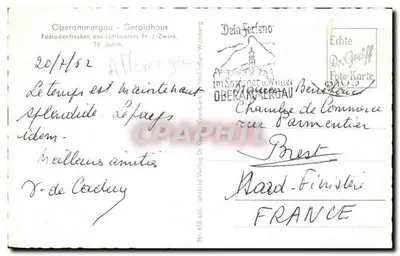 Oberammergau - Geroldhaus
Fassadenfresken des Lüftlmalers Fr. J. Zwink,
18. Jahrh.
20/7/62
Allemagne
Le temps est maintenant
splendide. Le pays
idem.
Meilleures amitiés
Dein Ferienort
im Sommer u. Winter
OBERAMMERGAU
Echte
Dr. Gräff
Foto-Karte
Chambre de Commerce
rue Parmentier
Brest
Nord-Finistère
FRANCE
CPAPHIL.COM